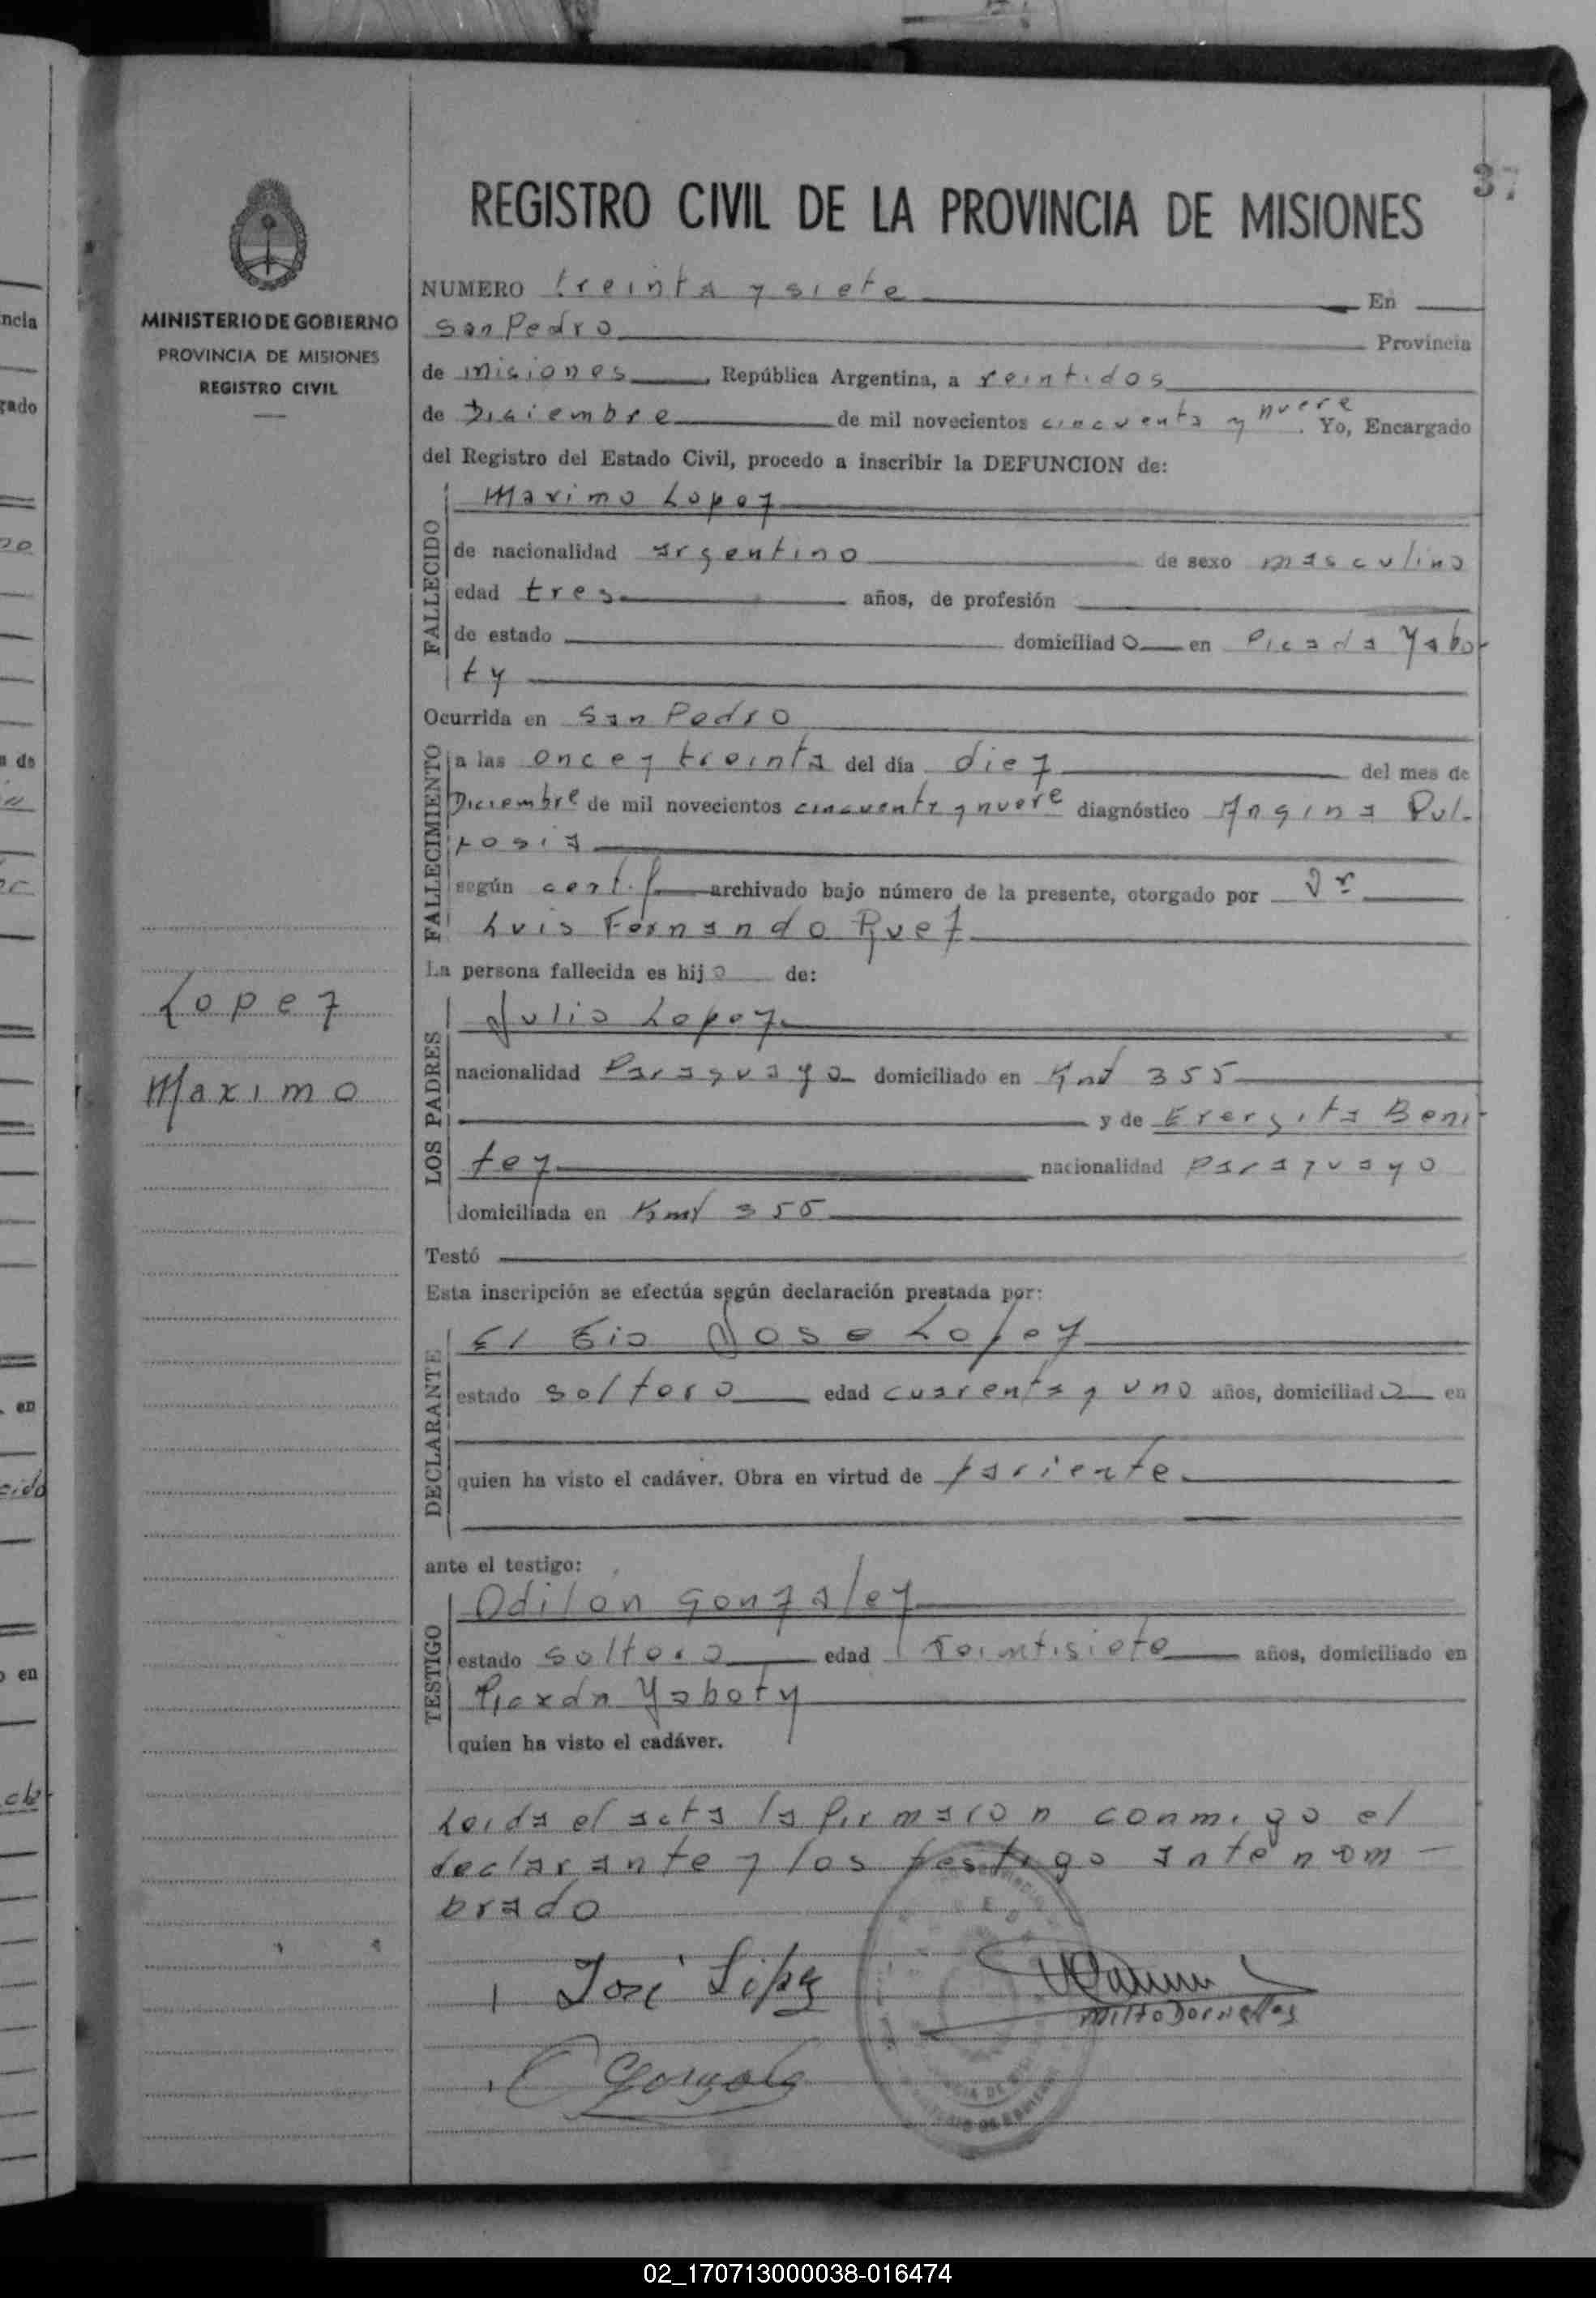 37
REGISTRO CIVIL DE LA PROVINCIA DE MISIONES
MINISTERIO DE GOBIERNO
PROVINCIA DE MISIONES
REGISTRO CIVIL
Lopez
Maximo
NUMERO treinta y siete En
San Pedro Provincia
de Misiones, República Argentina, a veintidos
de Diciembre de mil novecientos cincuenta y nueve. Yo, Encargado
del Registro del Estado Civil, procedo a inscribir la DEFUNCION de:
FALLECIDO
Maximo Lopez
de nacionalidad argentino de sexo masculino
edad tres años, de profesión
de estado domiciliado en Picada Yabo-
ty
Ocurrida en San Pedro
FALLECIMIENTO
a las once y treinta del día diez del mes de
Diciembre de mil novecientos cincuenta y nueve diagnóstico Angina Pul-
según certif archivado bajo número de la presente, otorgado por Dr
Luis Fernando Ruez
La persona fallecida es hijo de:
LOS PADRES
Julio Lopez
nacionalidad Paraguayo domiciliado en Kmt 355
y de Evergita Beni-
tez nacionalidad paraguayo
domiciliada en Kmt 355
Testó
Esta inscripción se efectúa según declaración prestada por:
DECLARANTE
El tio Jose Lopez
estado soltero edad cuarenta y uno años, domiciliado en
quien ha visto el cadáver. Obra en virtud de pariente
ante el testigo:
TESTIGO
Odilon Gonzalez
estado soltero edad veintisiete años, domiciliado en
Picada Yaboty
quien ha visto el cadáver.
Leida el acta la firmaron conmigo el
declarante y los testigo antenom-
brado
José López
Milto Dornelles
O Gonzalez
02_170713000038-016474